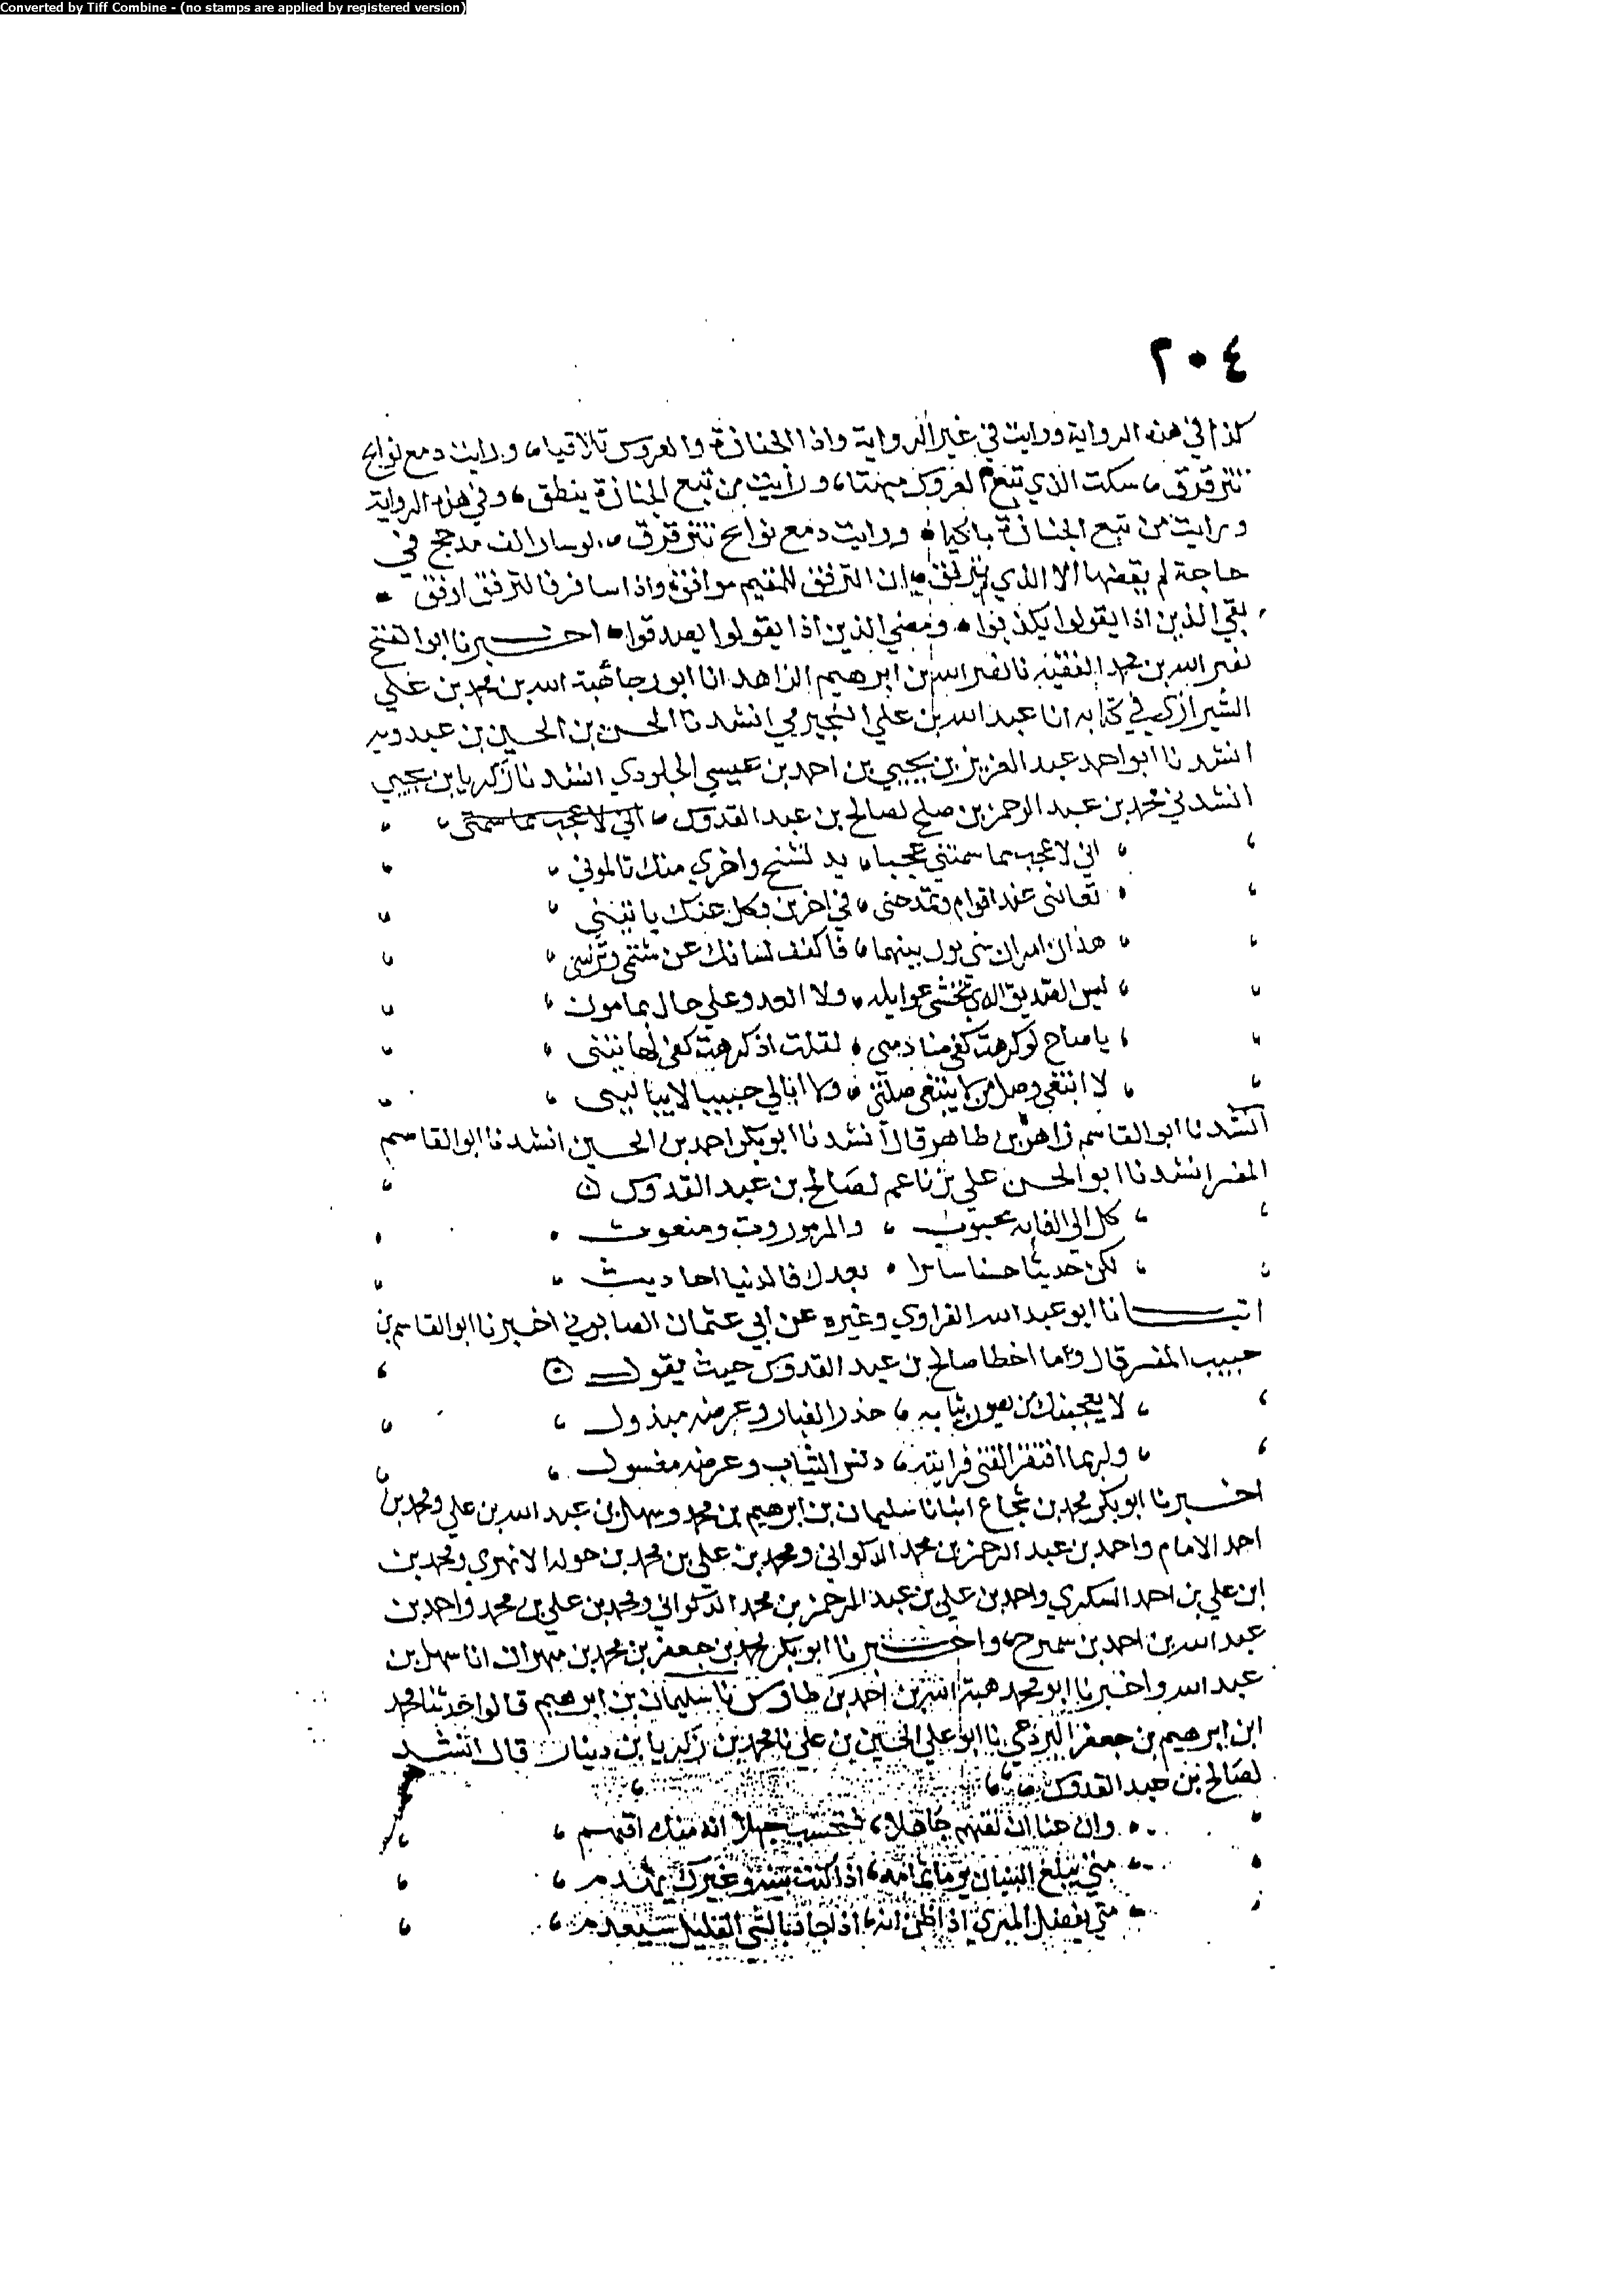 Converted by Tiff Combine - (no stamps are applied by registered version)
٢٠٤
كذا في هذه الرواية ورايت في غير الرواية واذا الجنازة والعروس تلاقيا، ورايت دمع نوايح
تترقرق، سكت الذي تبع العروس مبهتا، ورأيت من تبع الجنازة ينطق، وفي هذه الرواية
ورايت من تبع الجنازة باكيا، ورايت دمع نوايح تترقرق، لوسار الف مدجج في
حاجة لم يقضها الا الذي يترفق، ان الترفق للمقيم موافق، واذا سافر فالترفق ارفق
بقي الذين اذا يقولوا يكذبوا، ومضي الذين اذا يقولوا يصدقوا، اخبرنا ابو الفتح
نصر الله بن محمد الفقيه نا نصر الله بن ابرهيم الزاهد انا ابو رجا هبة الله بن محمد بن علي
الشيرازي في كتابه انا عبد الله بن علي النجيرمي انشدنا الحسن بن الحسين بن عبدويه
انشدنا ابو احمد عبد العزيز بن يحيي بن احمد بن عيسي الجلودي انشدنا زكريا بن يحيي
انشدني محمد بن عبد الرحمن بن صلح لصالح بن عبد القدوس، اني لاعجب مما سمتى،
اني لاعجب مما سمتني عجبا، يد تشح واخري منك تاسوني
تغتابني عند اقوام وتمدحني، في اخرين وكل عنك ياتيني
هذان امران شتى بون بينهما، فاكفف لسانك عن شتمي وتزيني
ليس الصديق الذي تخشى غوايله، ولا العدو على حال بمامون
يا صاح لو كرهت كفي منادمتي، لقلت اذ كرهت كفي لها بيني
لا ابتغي وصل من لا يبتغي صلتي، ولا ابالي حبيبا لا يباليني
انشدنا ابو القاسم زاهر بن طاهر قال انشدنا ابو بكر احمد بن الحسين انشدنا ابو القاسم
المفسر انشدنا ابو الحسن علي بن ناعم لصالح بن عبد القدوس
كل الي الغايه محبوب، والمرء موروث ومنعوت
لكن حديثا حسنا سايرا، بعدك فالدنيا احاديث
انبــانا ابو عبد الله الفراوي وغيره عن ابي عثمان الصابوني اخبرنا ابو القاسم بن
حبيب المفسر قال وما اخطا صالح بن عبد القدوس حيث يقول
لا يعجبنك من يصون ثيابه، حذر الغبار وعرضه مبذول
ولربما افتقر الفتى فرايته، دنس الثياب وعرضه مغسول
اخبرنا ابو بكر محمد بن شجاع انبانا سليمان بن ابرهيم بن محمد وسهل بن عبد الله بن علي ومحمد بن
احمد الامام واحمد بن عبد الرحمن بن محمد الذكواني ومحمد بن علي بن محمد بن حوله الابهري ومحمد بن
ابن علي بن احمد السكري واحمد بن علي بن عبد الرحمن بن محمد الذكواني ومحمد بن علي بن محمد واحمد بن
عبد الله بن احمد بن سميرح، واخبرنا ابو بكر محمد بن جعفر بن محمد بن مهران انا سهل بن
عبد الله واخبرنا ابو محمد هبة الله بن احمد بن طاوس نا سليمان بن ابرهيم قالوا حدثنا محمد
ابن ابرهيم بن جعفر اليزدي نا ابو علي الحسين بن علي نا محمد بن زكريا بن دينار قال انشد
لصالح بن عبد القدوس
وان عنا ان تفهم جاهلا، فتحسب جهلا انه منك افهم
متي يبلغ البنيان يوما تمامه، اذا كنت تبنيه وغيرك يهدم
متي يفضل المثري اذا ظن انه، اذا جاد بالشي القليل سيعدم